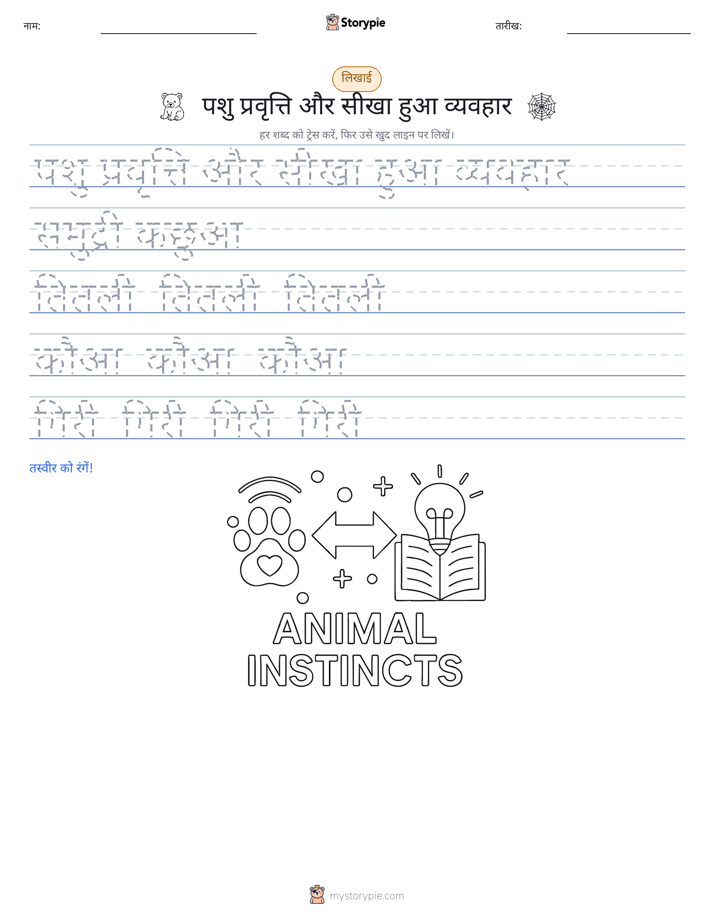 नाम:
Storypie
तारीख:
लिखाई
पशु प्रवृत्ति और सीखा हुआ व्यवहार
हर शब्द को ट्रेस करें, फिर उसे खुद लाइन पर लिखें।
पशु प्रवृत्ति और सीखा हुआ व्यवहार
समुद्री कछुआ
तितली तितली तितली
कौआ कौआ कौआ
गिरी गिरी गिरी गिरी
तस्वीर को रंगें!
ANIMAL
INSTINCTS
mystorypie.com